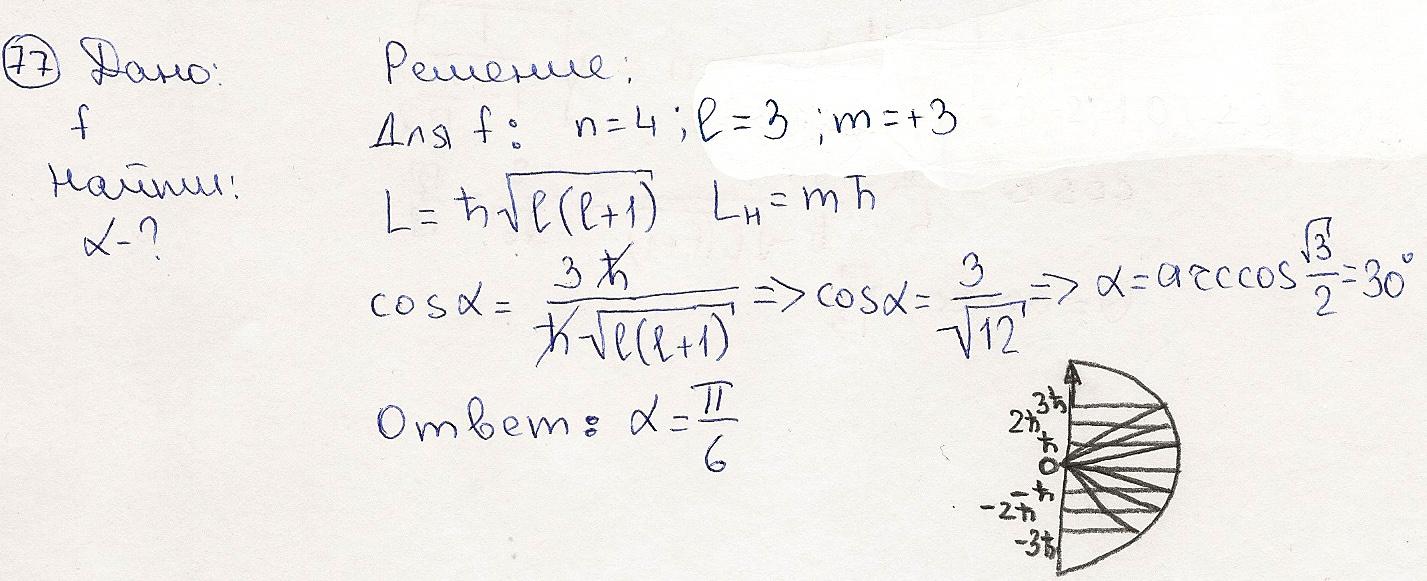 77 Дано:
f
Найти:
α-?
Решение:
Для f: n=4; l=3; m=+3
L=ħ√l(l+1) L_H=mħ
cosα= 3ħ/ħ√l(l+1) => cosα= 3/√12 => α=arccos √3/2=30°
Ответ: α=π/6
3ħ
2ħ
ħ
0
-ħ
-2ħ
-3ħ